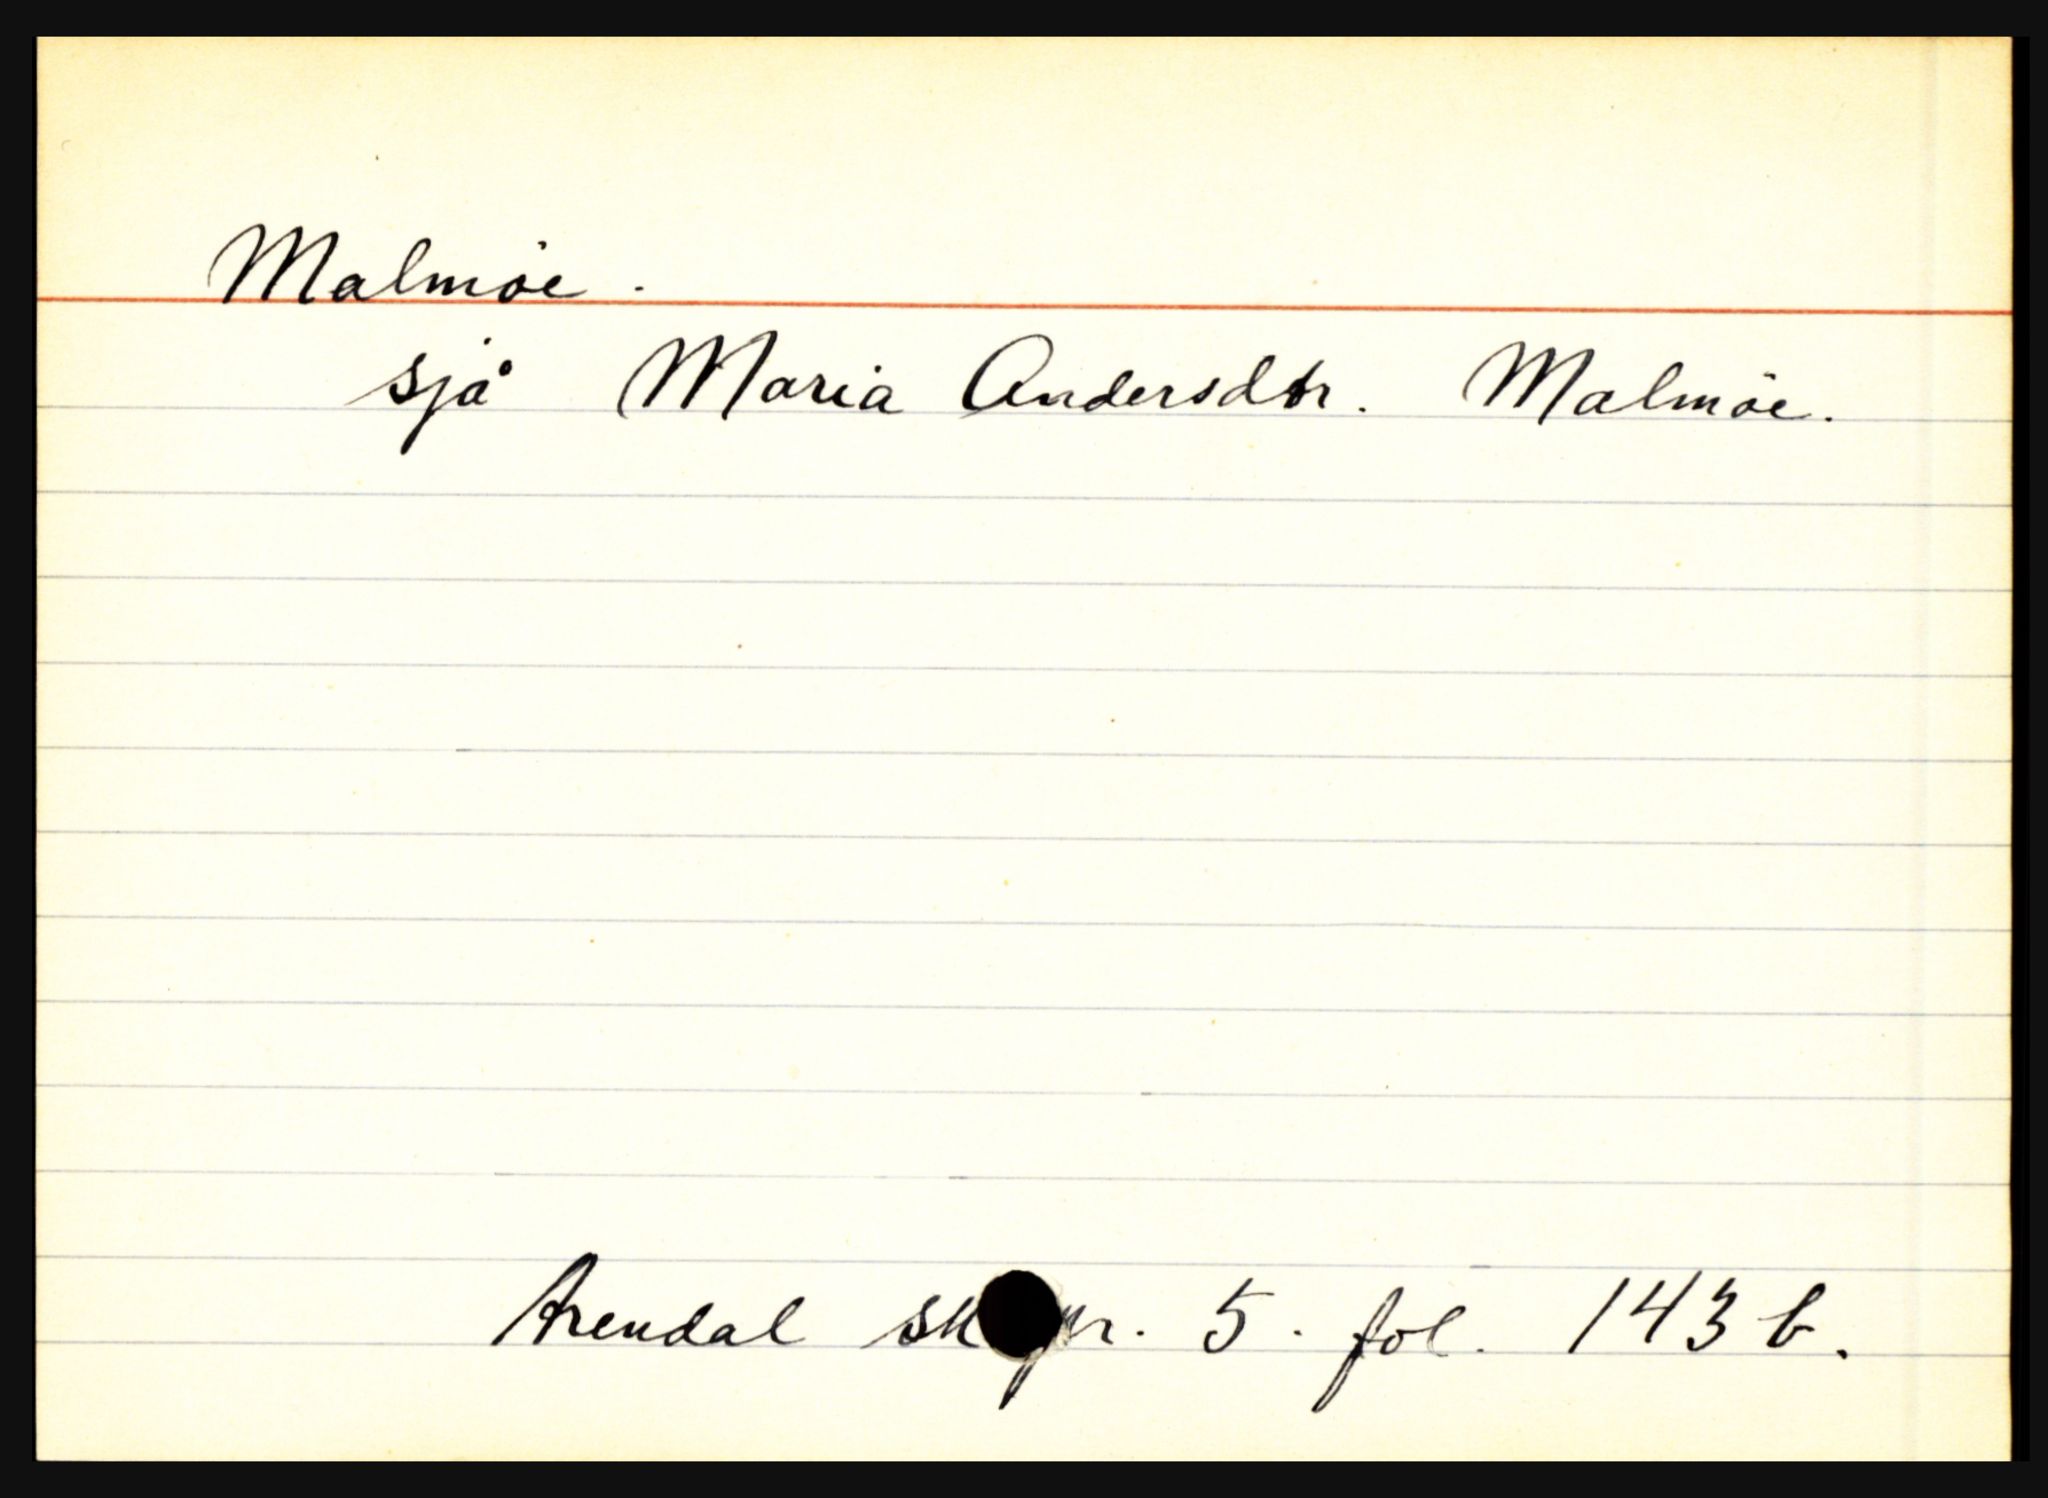 Malmøe.
sjå Maria Andersdtr. Malmøe.
Arendal nr. 5. fol. 143 b.